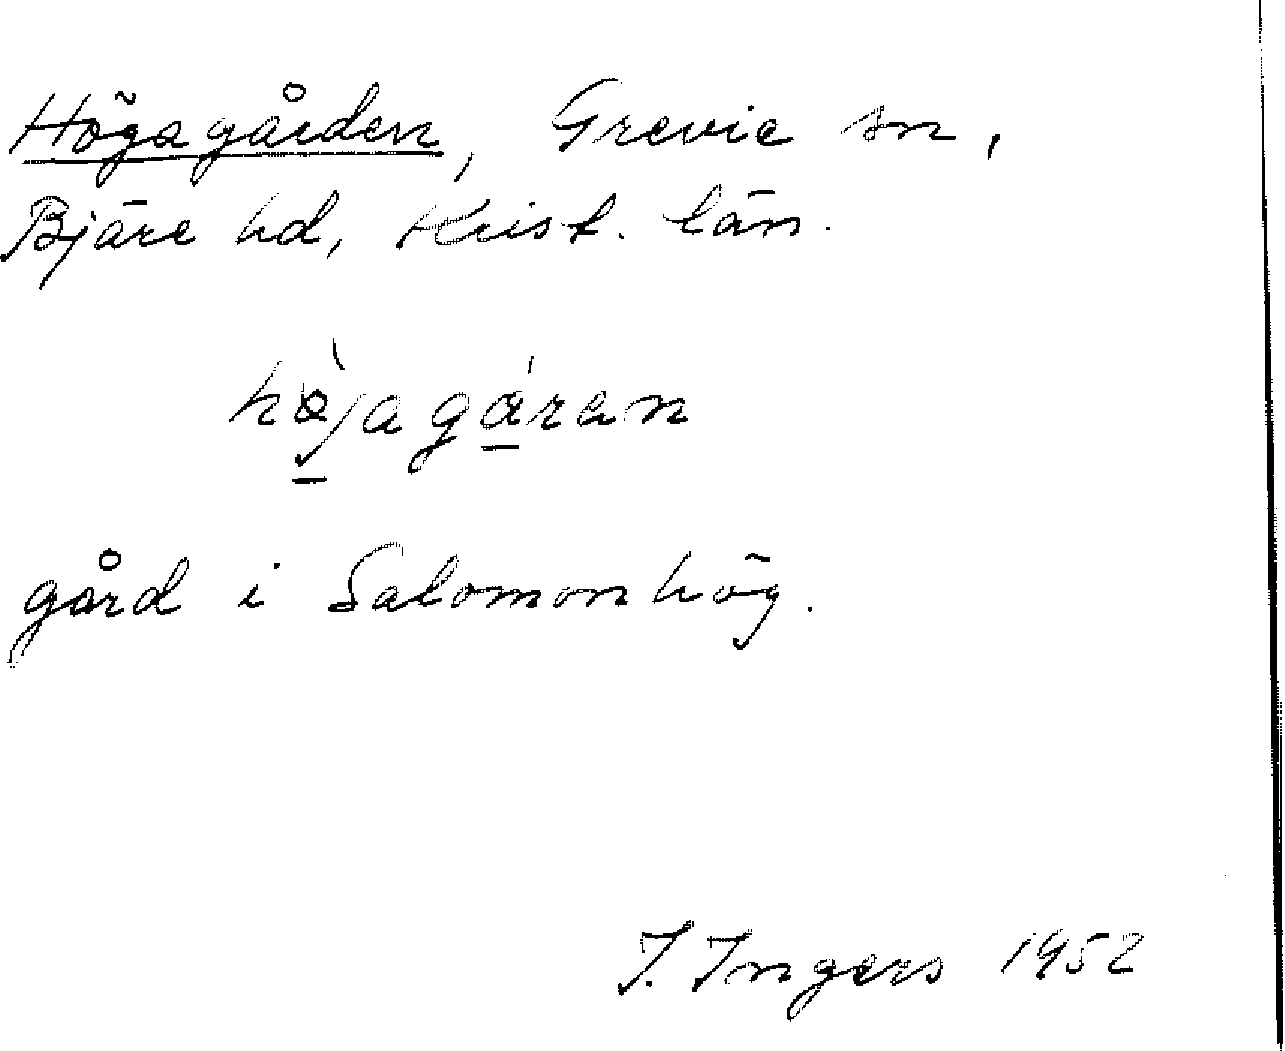 Högagården, Grevie sn,
Bjäre hd, Krist. län.
hø̀jagáren
gård i Salomonhög.
I. Ingers 1952